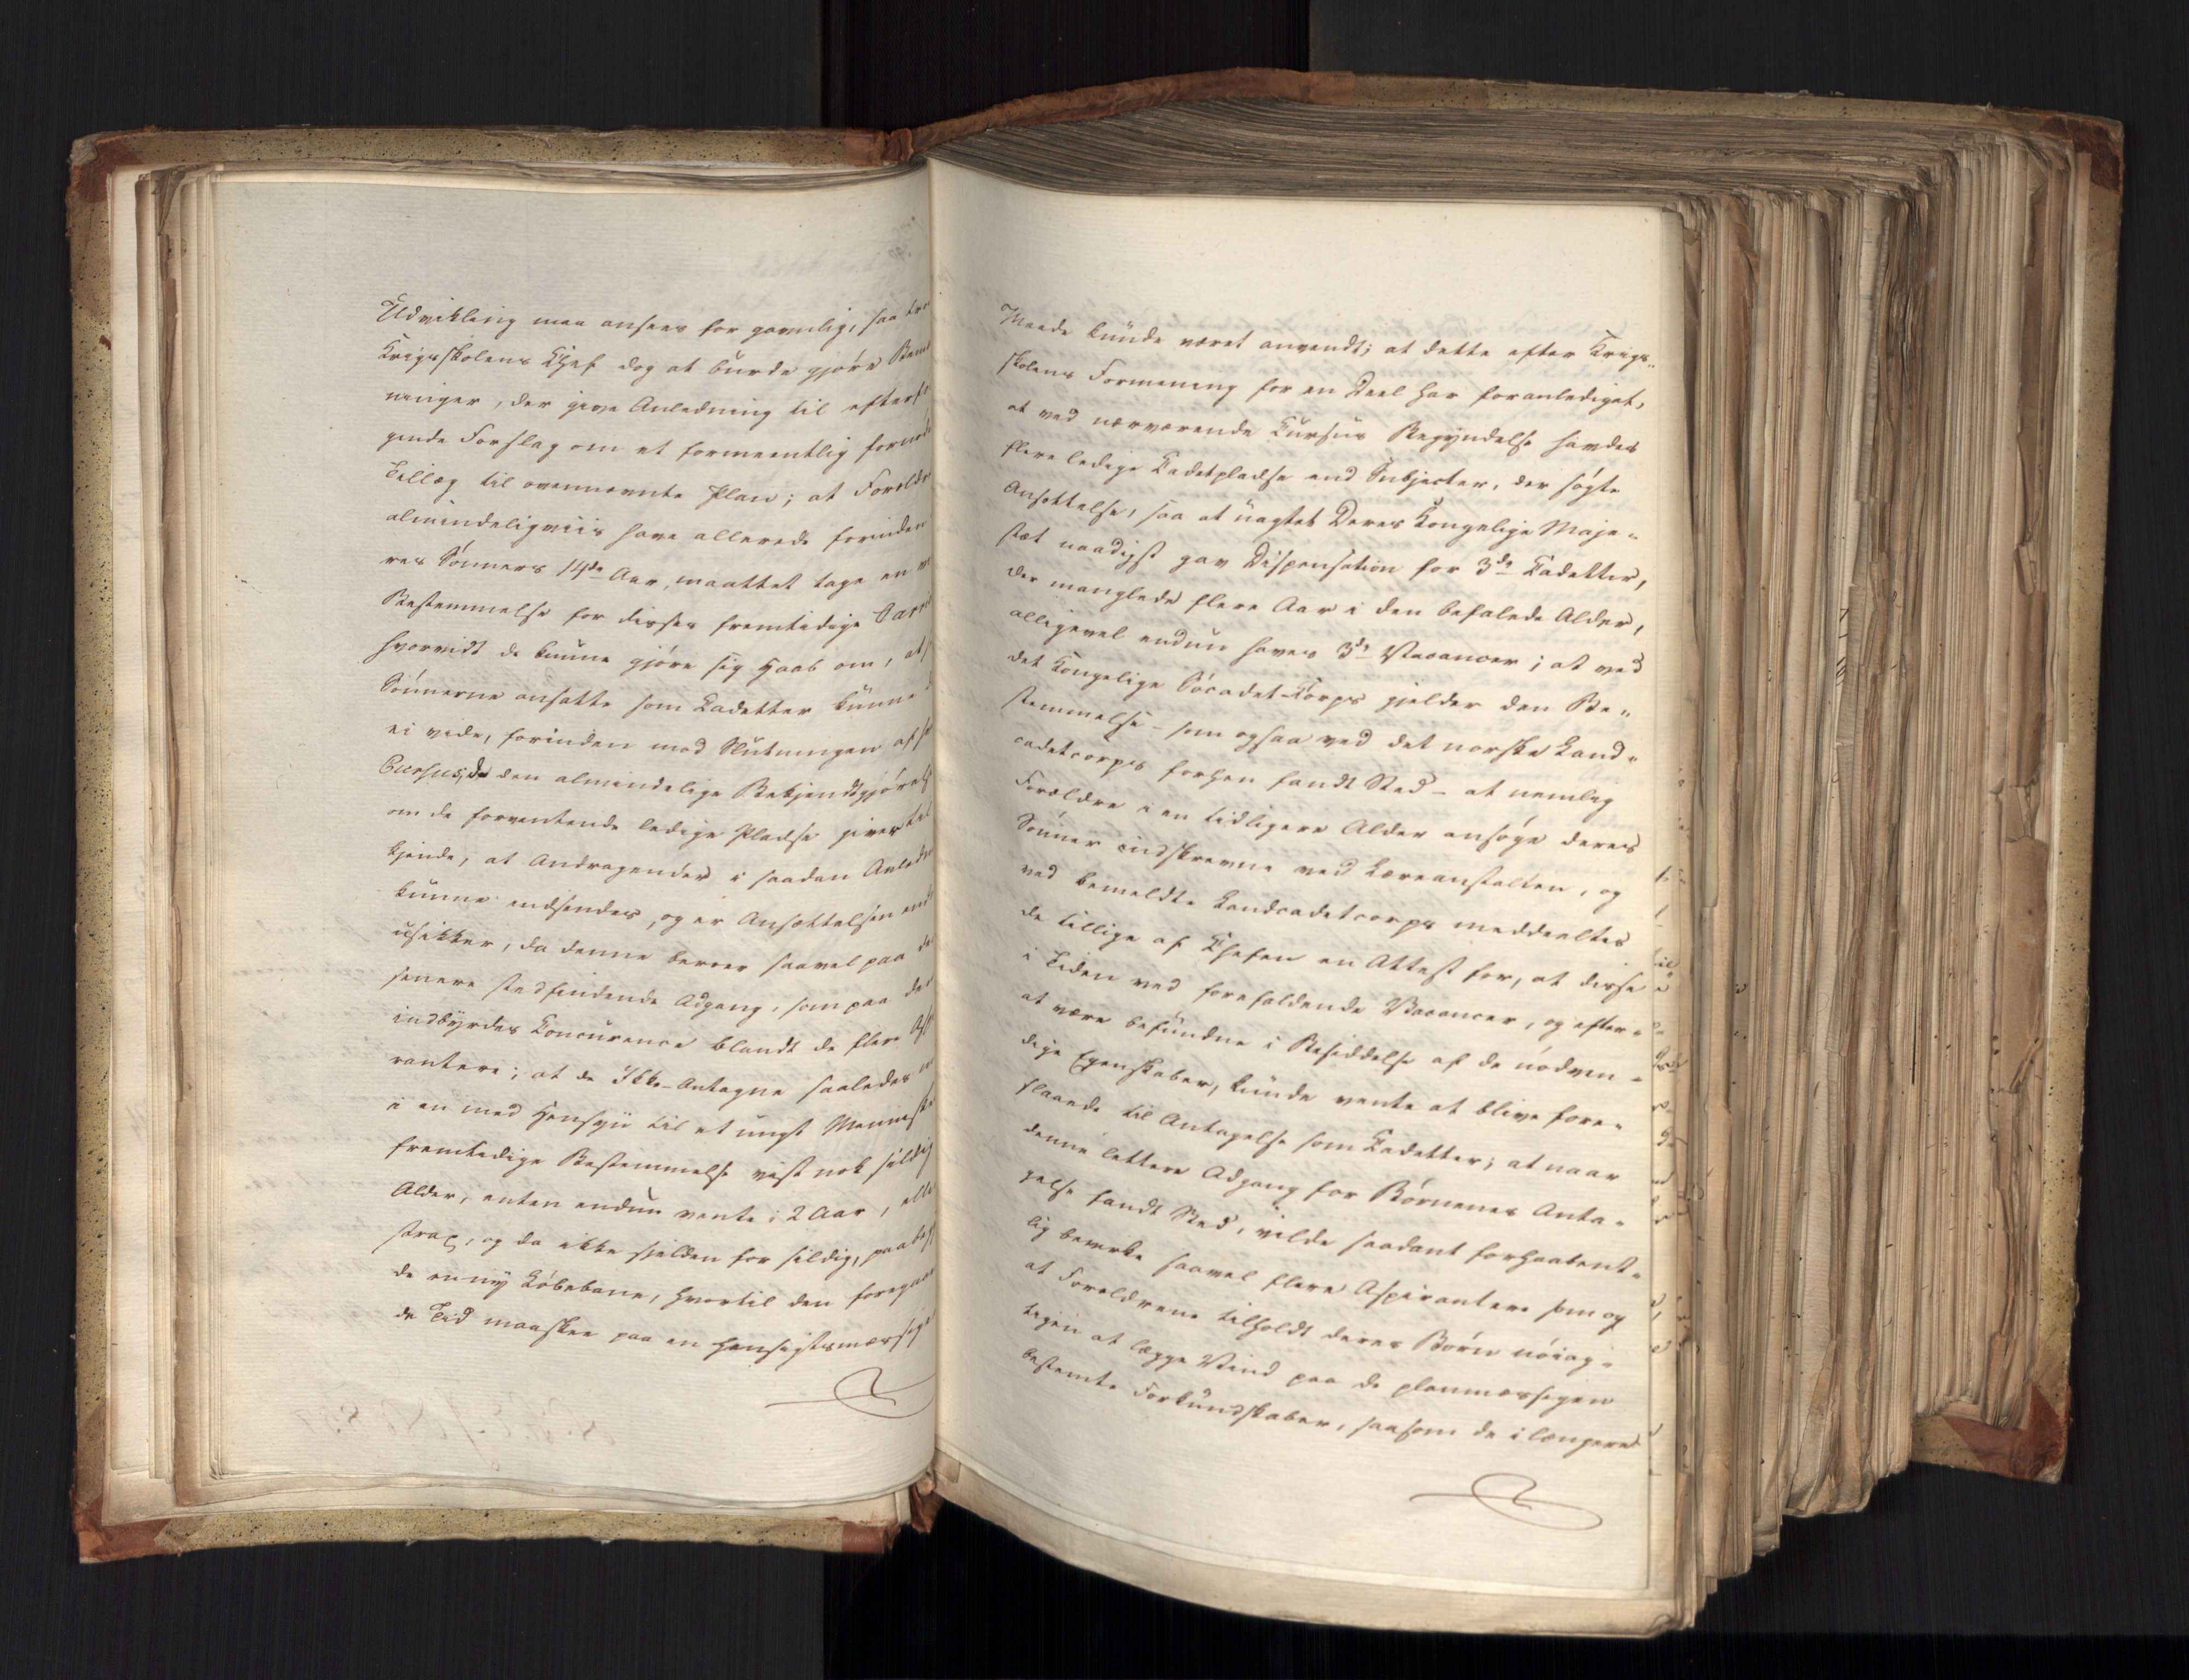 Udvikling maa ansees for gavnlig, saa tro
Krigsskolens Chef dog at burde gjøre Bem
ninger, der give Anledning til efterf
gende Forslag om et formeentlig fornød
Tillæg til ovennævnte Plan; at Forældr
almindeligviis have allerede forinden
res Sønners 14de Aar, maattet tage en
Bestemmelse for disses fremtidige Carri
hvorvidt de kunne gjøre sig Haab om, at
Sønnerne ansatte som Kadetter kunne
ei vide, forinden mod Slutningen af
Cursus, da den almindelige Bekjendtgjørels
om de forventende ledige Pladse giver til
kjende, at Andragender i saadan Anledn
kunne indsendes, og er Ansættelsen end
usikker, da denne beroer saavel paa de
senere stedfindende Adgang, som paa den
indbyrdes Concurence blandt de flere Asp
rantere; at de Ikke-Antagne saaledes
i en med Hensyn til et ungt Mennesk
fremtidige Bestemmelse vist nok sildig
Alder, enten endnu vente i 2 Aar, elle
strax, og da ikke sjelden for sildig, paa
de en ny Løbebane, hvortil den foregaae
de Tid maaskee paa en hensigtsmæssige
Maade kunde været anvendt; at dette efter Krigs-
skolens Formening for en Deel har foranlediget,
at ved nærværende Cursus Begyndelse havdes
flere ledige Kadetpladse end Subjecter, der søgte
Ansættelse, saa at uagtet Deres Kongelige Maje-
stæt naadigst gav Dispensation for 3de Kadetter,
der manglede flere Aar i den befalede Alder,
alligevel endnu haves 3de Vacancer; at ved
det Kongelige Søcadet-Corps gjelder den Be-
stemmelse - som ogsaa ved det norske Land-
cadetcorps forhen fandt Sted - at nemlig
Forældre i en tidligere Alder ansøge deres
Sønner indskrevne ved Læreanstalten, og
ved bemeldte Landcadetcorps meddeeltes
de tillige af Chefen en Attest for, at disse
i Tiden ved forefaldende Vacancer, og efter-
at være befundne i Besiddelse af de nødven-
dige Egenskaber, kunde vente at blive fore-
slaaede til Antagelse som Kadetter; at naar
denne lettere Adgang for Børnenes Anta-
gelse fandt Sted, vilde saadant forhaabent-
lig bevirke saavel flere Aspirantere som og
at Forældrene tilholdt deres Børn nøiag-
tigen at lægge Vind paa de planmæssigen
bestemte Forkundskaber, saasom de i længere